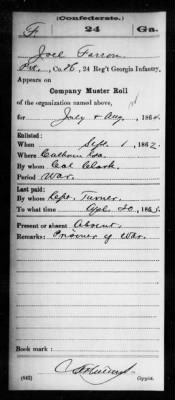 (Confederate.)
F 24 Ga.
Joel Farron
Pvt., Co. , 24 Reg't Georgia Infantry.
Appears on
Company Muster Roll
of the organization named above,
for July & Aug, 1864.
Enlisted:
When Sept. 1, 1862.
Where Calhoun Ga.
By whom Col Clark.
Period War.
Last paid:
By whom Capt. Turner.
To what time Apl. 30, 186
Present or absent Absent.
Remarks: Prisoner of War.
Book mark:
(642) Copyist.